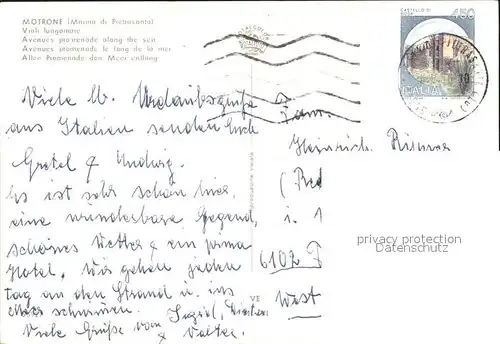 MOTRONE (Marina di Pietrasanta)
Viali lungomare
Avenues promenade along the sea
Avenues promenade le long de la mer
Allee Promenade dem Meer entlang
450
ITALIA
Viele lb. Urlaubsgrüße
aus Italien senden Euch
Gretel & Ludwig.
Es ist sehr schön hier,
eine wunderbare Gegend,
schönes Wetter & ein prima
Hotel. Wir gehen jeden
tag an den Strand u. ins
Meer schwimmen.
Viele Grüße von Ingrid,
& Walter.
Fam.
Heinrich
i. 1
6102
West
privacy protection
Datenschutz
VE